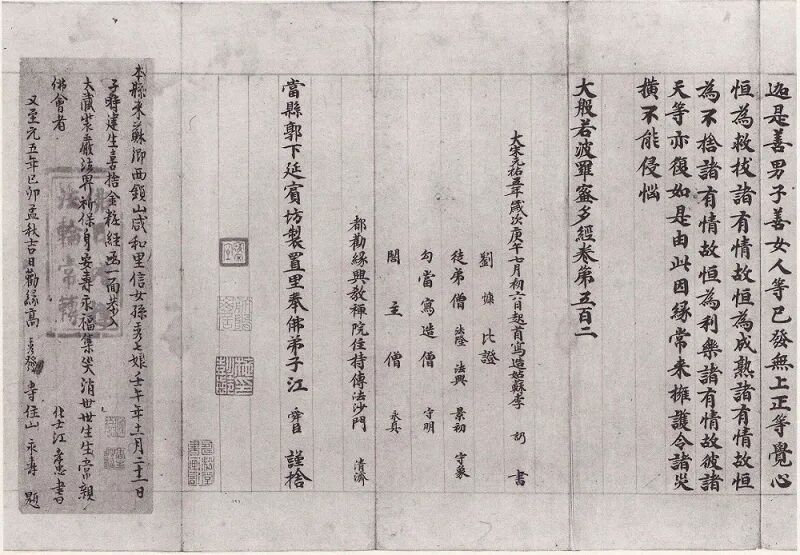 迦是善男子善女人等已發無上正等覺心
恒為救拔諸有情故恒為成熟諸有情故恒
為不捨諸有情故恒為利樂諸有情故彼諸
天等亦復如是由此因緣常來擁護令諸災
橫不能侵惱
大般若波羅蜜多經卷第五百二
大宋元祐五年歲次庚午七月初六日起首寫造姑蘇李 書
劉 比證
徒弟僧 法隆 法興 景初 守象
勾當寫造僧 守明
閣主僧 永真
都勸緣興教禪院住持傳法沙門 清濟
當縣郭下延賓坊製置里奉佛弟子江 舜臣 謹捨
本縣來蘇鄉西鎖山咸和里信女孫 七娘壬午年十一月二十一日
子 建生喜捨金粧經函一面 入
大藏裝嚴法界祈保身安壽永福集災消世世生生常親
佛會者 化士江 忠書
又至元五年己卯孟秋吉日勸緣高 住山永壽 題
法輪常轉